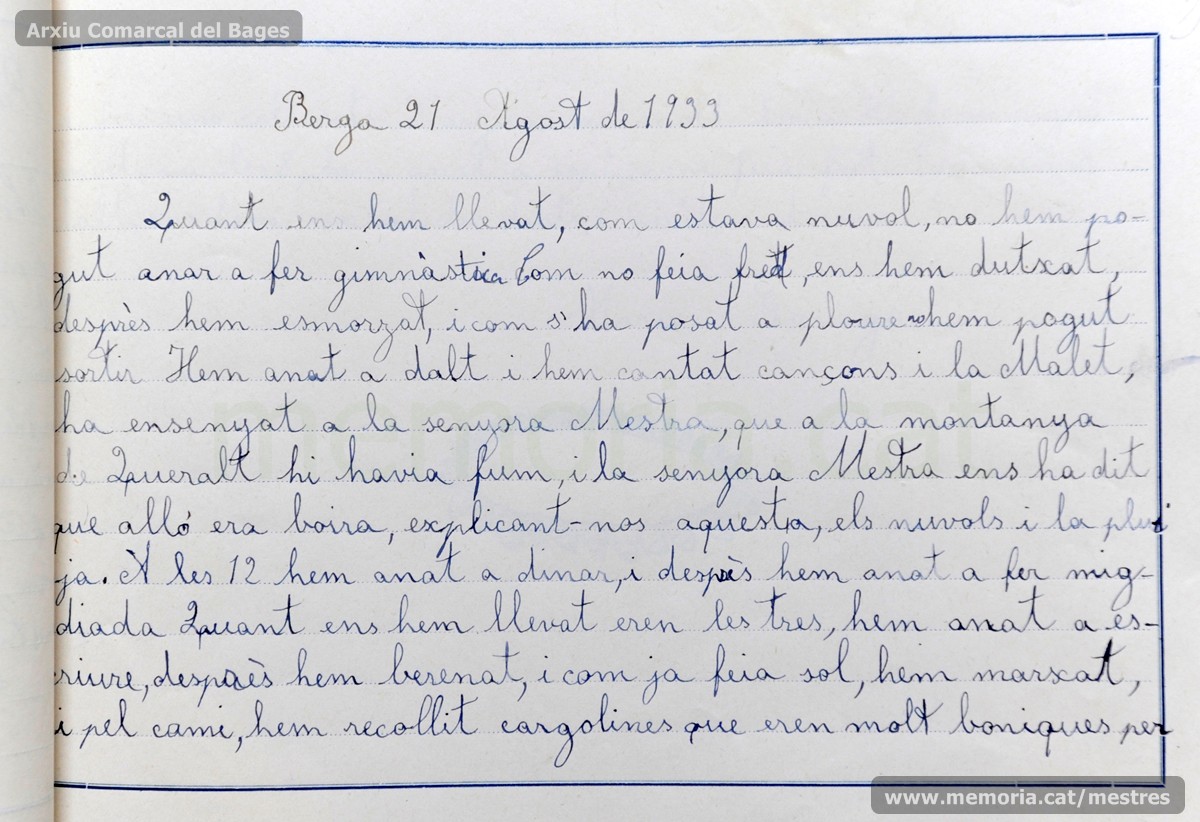 Arxiu Comarcal del Bages
Berga 21 Agost de 1933
Quant ens hem llevat, com estava nuvol, no hem po-
gut anar a fer gimnàstica Com no feia fred, ens hem dutxat,
desprès hem esmorzat, i com s'ha posat a ploure no hem pogut
sortir Hem anat a dalt i hem cantat cançons i la Malet,
ha ensenyat a la senyora Mestra, que a la montanya
de Queralt hi havia fum, i la senyora Mestra ens ha dit
que alló era boira, explicant-nos aquesta, els nuvols i la plu
ja. A les 12 hem anat a dinar, i desprès hem anat a fer mig-
diada Quant ens hem llevat eren les tres, hem anat a es-
criure, desprès hem berenat, i com ja feia sol, hem marxat,
i pel cami, hem recollit cargolines que eren molt boniques per
memoria.cat
www.memoria.cat/mestres